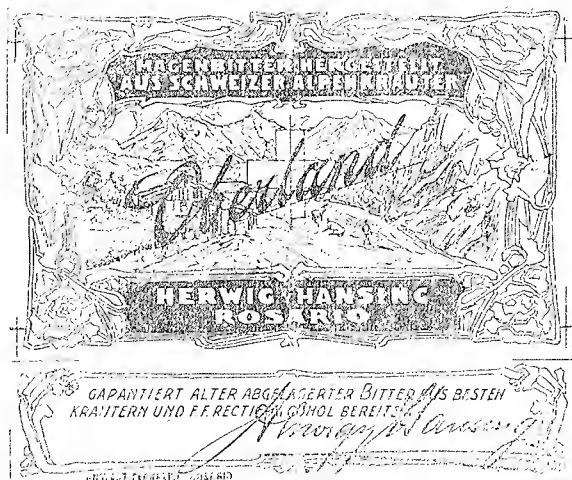 MAGENBITTER HERGESTELLT
AUS SCHWEIZER ALPENKRÄUTER
Oberland
HERWIG HANSING
ROSARIO
GARANTIERT ALTER ABGELAGERTER BITTER AUS BESTEN
KRAUTERN UND F.F. RECTIF. BEREITET
Herwig Hansing
ROSARIO